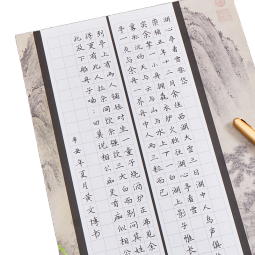 湖心亭看雪
崇祯五年十二月余住西湖大雪三日湖中人鸟声俱
余拏一小舟拥毳衣炉火独往湖心亭看雪
天与云与山与水上下一白湖上影子惟长
与余舟一芥舟中人两三粒而已
到亭上有两人铺毡对坐一童子烧酒炉正沸见余
得更有此人拉余同饮余强饮三大白而别问其姓
此及下船舟子喃喃曰莫说相公痴更有痴似相公
辛丑年夏月黄文博书